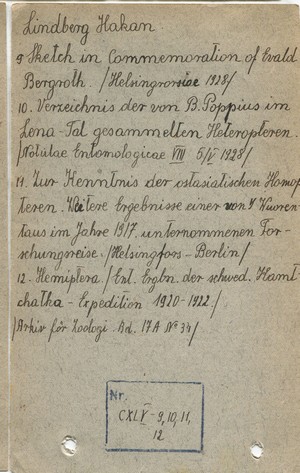 Lindberg Hakan
9 Sketch in Commemoration of Evald
Bergroth. /Helsingforsiae 1928/
10. Verzeichnis der von B. Poppius im
Lena-Tal gesammelten Heteropteren.
/Notulae Entomologicae VIII 5/V 1928/
11. Zur Kenntnis der ostasiatischen Homop
teren. Weitere Ergebnisse einer von Y. Wuoren-
taus im Jahre 1917. unternommenen For-
schungsreise. /Helsingfors - Berlin/
12. Hemiptera. /Ent. Ergbn. der schwed. Kamt
chatka - Expedition 1920-1922./
/Arkiv för Zoologi. Bd. 17A № 34/
Nr.
CXLV - 9, 10, 11,
12